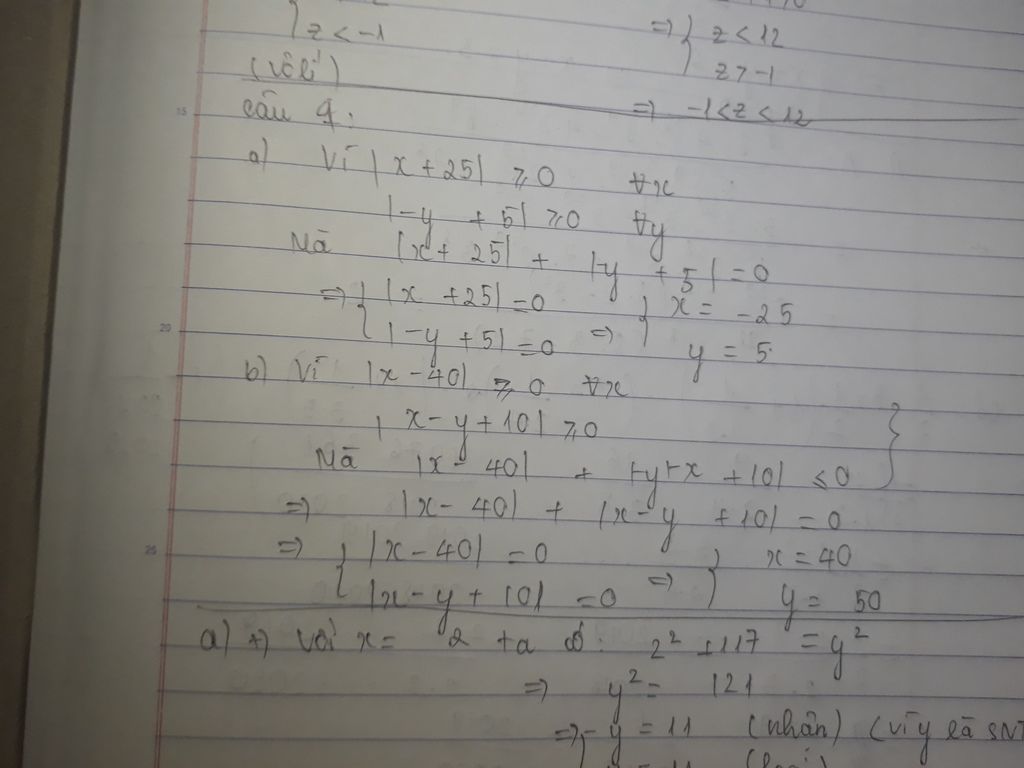 z < -1 => { z < 12
(vôlí) z > -1
=> -1 < z < 12
15
câu 4:
a) Vì |x + 25| ⩾ 0 ∀x
|-y + 5| ⩾ 0 ∀y
Mà |x + 25| + |-y + 5| = 0
=> { |x + 25| = 0 => { x = -25
20
|-y + 5| = 0 y = 5
b) Vì |x - 40| ⩾ 0 ∀x
|x - y + 10| ⩾ 0 }
Mà |x - 40| + |-y + x + 10| ⩽ 0
=> |x - 40| + |x - y + 10| = 0
25
=> { |x - 40| = 0 => { x = 40
|x - y + 10| = 0 y = 50
a) +) Với x = 2 ta có: 2² + 117 = y²
=> y² = 121
=> y = 11 (nhận) (vì y là SNT